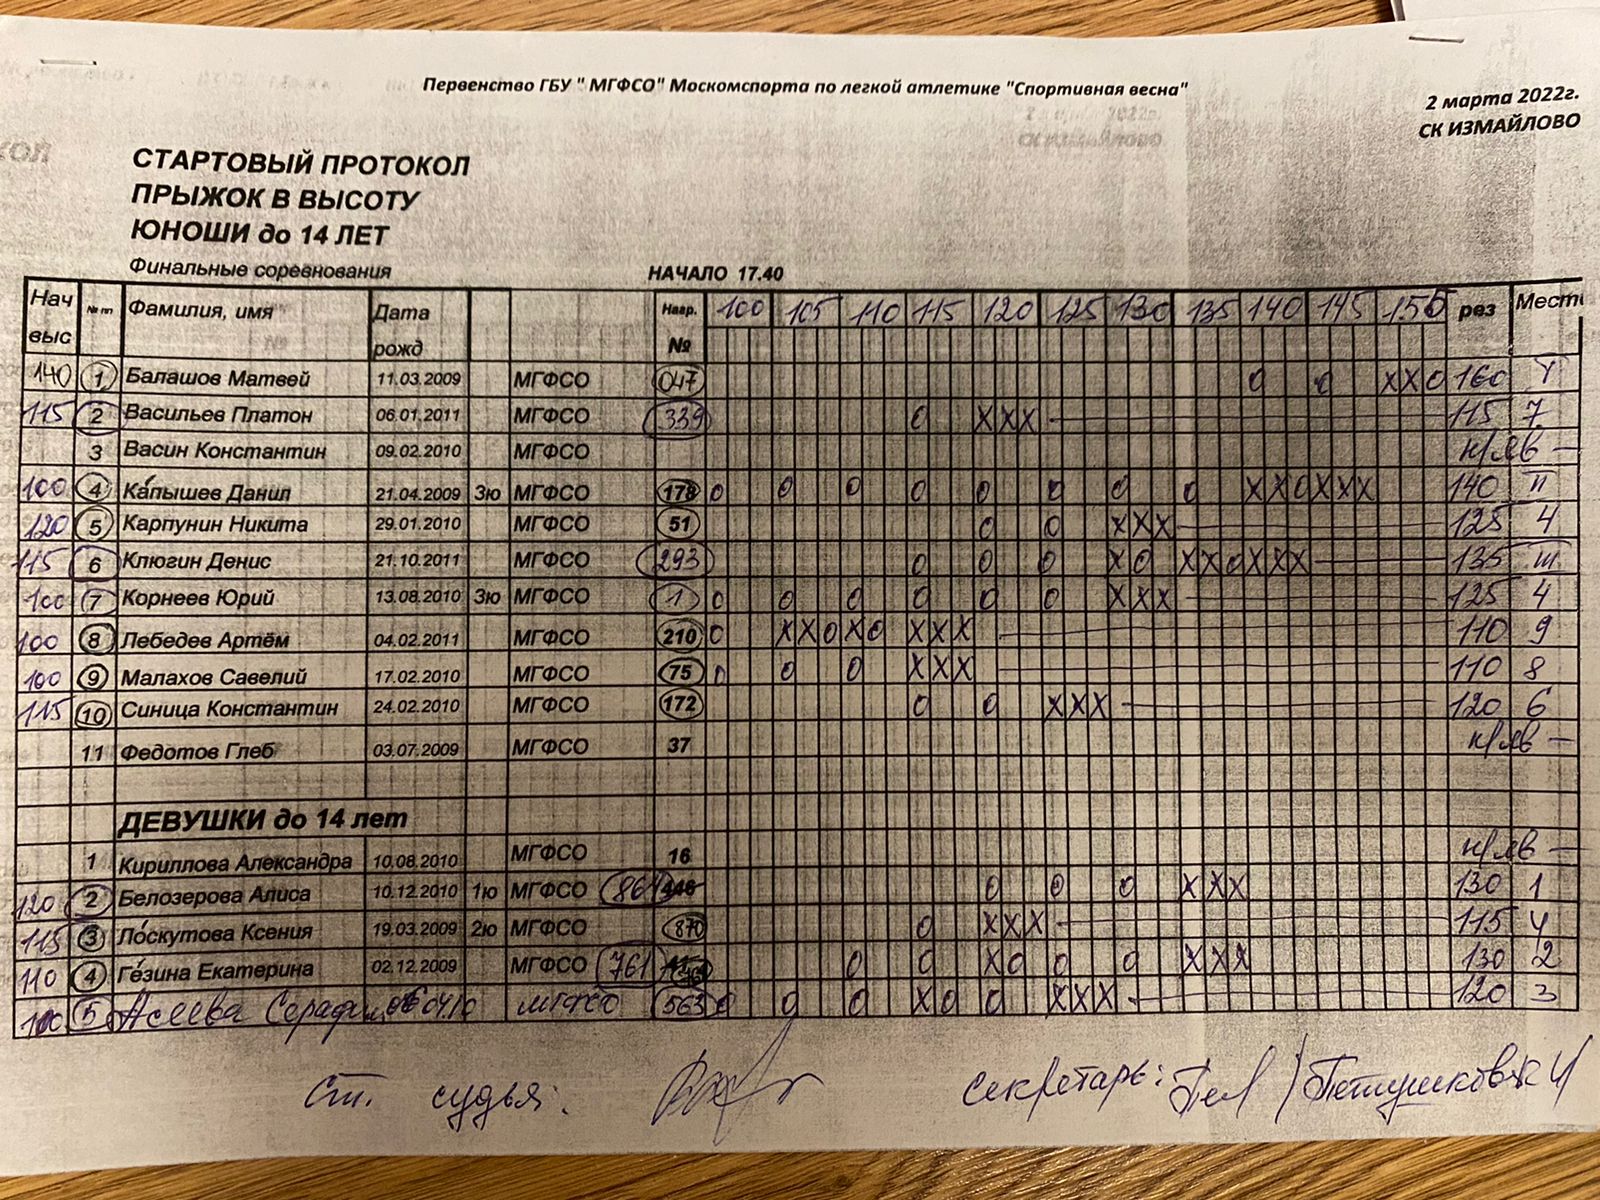 Первенство ГБУ " МГФСО" Москомспорта по легкой атлетике "Спортивная весна"
2 марта 2022г.
СК ИЗМАЙЛОВО
СТАРТОВЫЙ ПРОТОКОЛ
ПРЫЖОК В ВЫСОТУ
ЮНОШИ до 14 ЛЕТ
Финальные соревнования НАЧАЛО 17.40
Нач выс № пп Фамилия, имя Дата рожд Нагр. № 100 105 110 115 120 125 130 135 140 145 150 рез Мест
140 1 Балашов Матвей 11.03.2009 МГФСО 047 o o xxo 160 I
115 2 Васильев Платон 06.01.2011 МГФСО 339 o xxx 115 7
3 Васин Константин 09.02.2010 МГФСО н/яв —
100 4 Капышев Данил 21.04.2009 3ю МГФСО 178 o o o o o o o o xxo xxx 140 II
120 5 Карпунин Никита 29.01.2010 МГФСО 51 o o xxx 125 4
115 6 Клюгин Денис 21.10.2011 МГФСО 293 o o o xo xxo xxx 135 III
100 7 Корнеев Юрий 13.08.2010 3ю МГФСО 1 o o o o o o xxx 125 4
100 8 Лебедев Артём 04.02.2011 МГФСО 210 o xxo xo xxx 110 9
100 9 Малахов Савелий 17.02.2010 МГФСО 75 o o o xxx 110 8
115 10 Синица Константин 24.02.2010 МГФСО 172 o o xxx 120 6
11 Федотов Глеб 03.07.2009 МГФСО 37 н/яв —
ДЕВУШКИ до 14 лет
1 Кириллова Александра 10.08.2010 МГФСО 16 н/яв —
120 2 Белозерова Алиса 10.12.2010 1ю МГФСО o o o xxx 130 1
115 3 Лоскутова Ксения 19.03.2009 2ю МГФСО 870 o xxx 115 4
110 4 Гезина Екатерина 02.12.2009 МГФСО 761 o o xo o o xxx 130 2
100 5 Асеева 04.10 МГФСО 563 o o o xo o xxx 120 3
Ст. судья: секретарь: